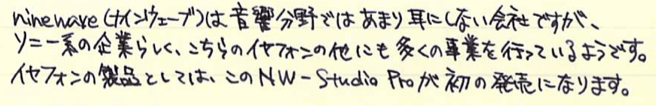 ninewave(ナインウェーブ)は音響分野ではあまり耳にしない会社ですが、
ソニー系の企業らしく、こちらのイヤフォンの他にも多くの事業を行っているようです。
イヤフォンの製品としては、このNW-Studio Proが初の発売になります。